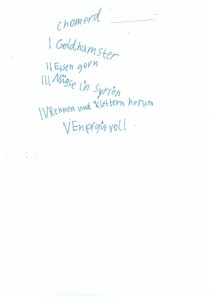 chomerd
I Goldhamster
II Essen gern
III Nüsse in Syrien
IV Rennen und klettern herum
V Energievoll